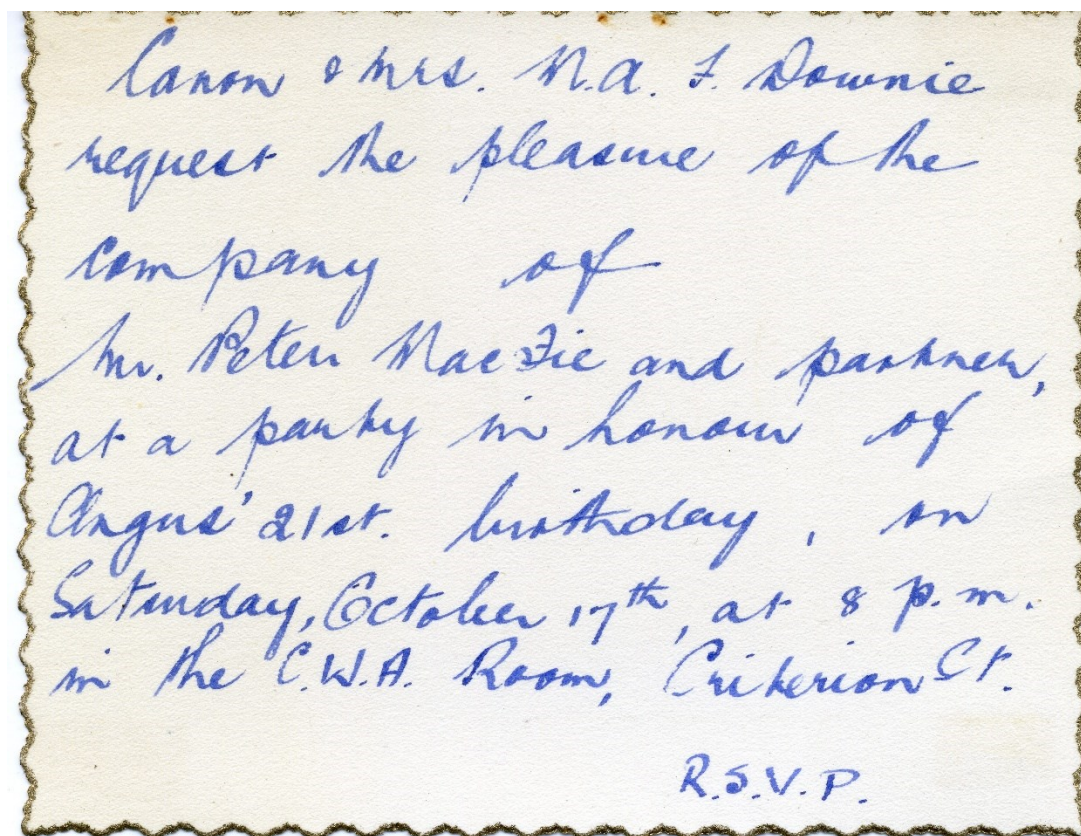 Canon & Mrs. M.A. F. Downie
request the pleasure of the
company of
Mr. Peter MacFie and partner,
at a party in honour of
Angus' 21st. birthday, on
Saturday, October 17th, at 8 p.m.
in the C.W.A. Room, Criterion St.
R.S.V.P.